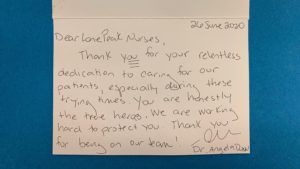 26 June 2020
Dear Lone Peak Nurses,
Thank you for your relentless
dedication to caring for our
patients, especially during these
trying times. You are honestly
the true heros. We are working
hard to protect you. Thank you
for being on our team!
Dr Angela